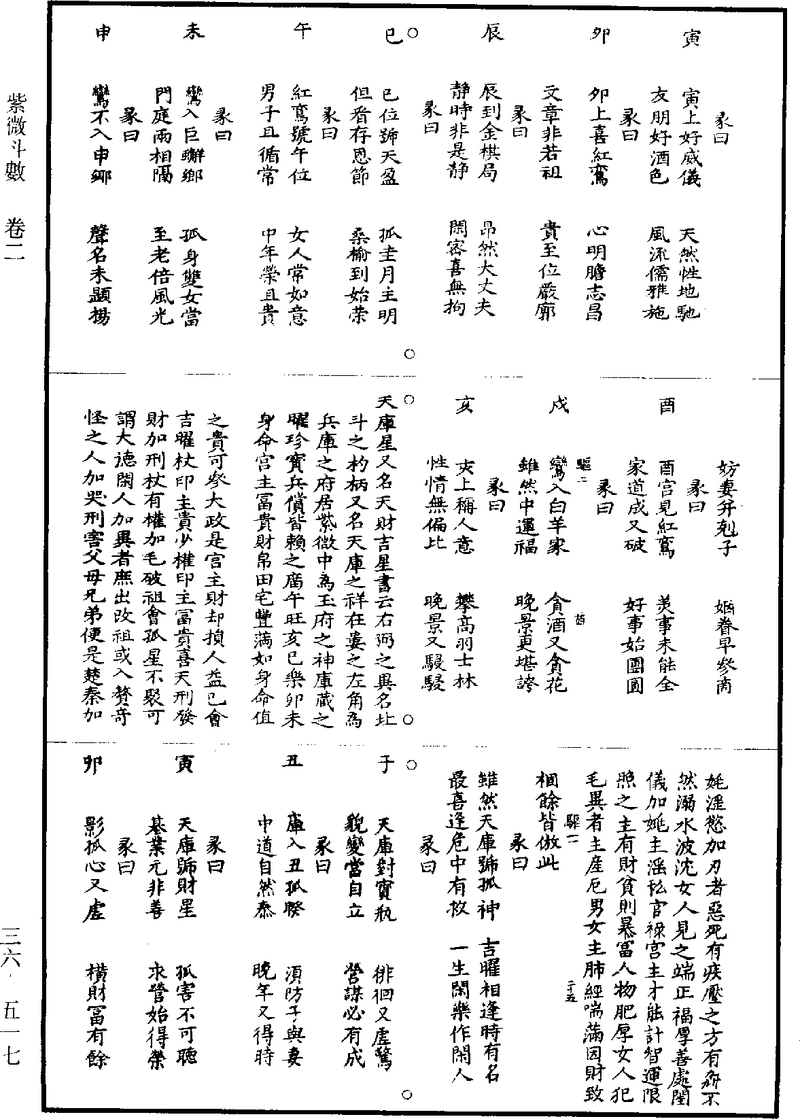 紫微斗數 卷二
三六・五一七
彖曰
寅 寅上好威儀 天然性地馳
友朋好酒色 風流儒雅施
彖曰
卯 卯上喜紅鸞 心明膽志昌
文章非若祖 貴至位嚴廓
彖曰
辰 辰到金棋局 昂然大丈夫
静時非是静 閙審喜無拘
彖曰
巳 巳位號天盈 孤圭月主明
但看存恩節 桑榆到始荣
彖曰
午 紅鸞號午位 女人常如意
男子且循常 中年榮且貴
彖曰
未 鸞入巨蠏鄉 孤身雙女當
門庭兩相隔 至老倍風光
彖曰
申 鸞不入申鄉 聲名未顯揚
妨妻并剋子 姻眷早參商
彖曰
酉 酉宫見紅鸞 美事未能全
家道成又破 好事始團圓
彖曰
驅二
戌 鸞入白羊家 貪酒又貪花
雖然中運福 晚景更堪誇
彖曰
亥 亥上稱人意 攀高羽士林
性情無偏比 晚景又駸駸
天庫星又名天財吉星書云右弼之異名北
斗之杓柄又名天庫之祥在婁之左角為
兵庫之府居紫微中為玉府之神庫藏之
曜珍寶兵償皆賴之廣午旺亥巳樂卯未
身命宫主冨貴財帛田宅豐滿如身命值
之貴可參大政是宫主財却損人益己會
吉曜杖印主貴少權印主冨貴喜天刑發
財加刑杖有權加毛破祖會孤星不聚可
謂大德閑人加異者庶出改祖或入贅竒
怪之人加哭刑害父母兄弟便是楚秦加
姚淫慾加刃者惡死有疾壓之方有氣不
然溺水波沈女人見之端正福厚善處閨
儀加姚主淫私官祿宫主才能計智運限
照之主有財貧則暴冨人物肥厚女人犯
毛異者主產厄男女主肺經喘滿因財致
梱餘皆倣此
彖曰
雖然天庫號孤神 吉曜相逢時有名
最喜逢危中有救 一生閑樂作閑人
彖曰
子 天庫對寳瓶 徘徊又虚驚
貌變當自立 營謀必有成
彖曰
丑 庫入丑孤睽 須防子與妻
中道自然泰 晚年又得時
彖曰
寅 天庫號財星 孤害不可聽
基業元非善 求營始得榮
彖曰
卯 影孤心又虚 橫財冨有餘